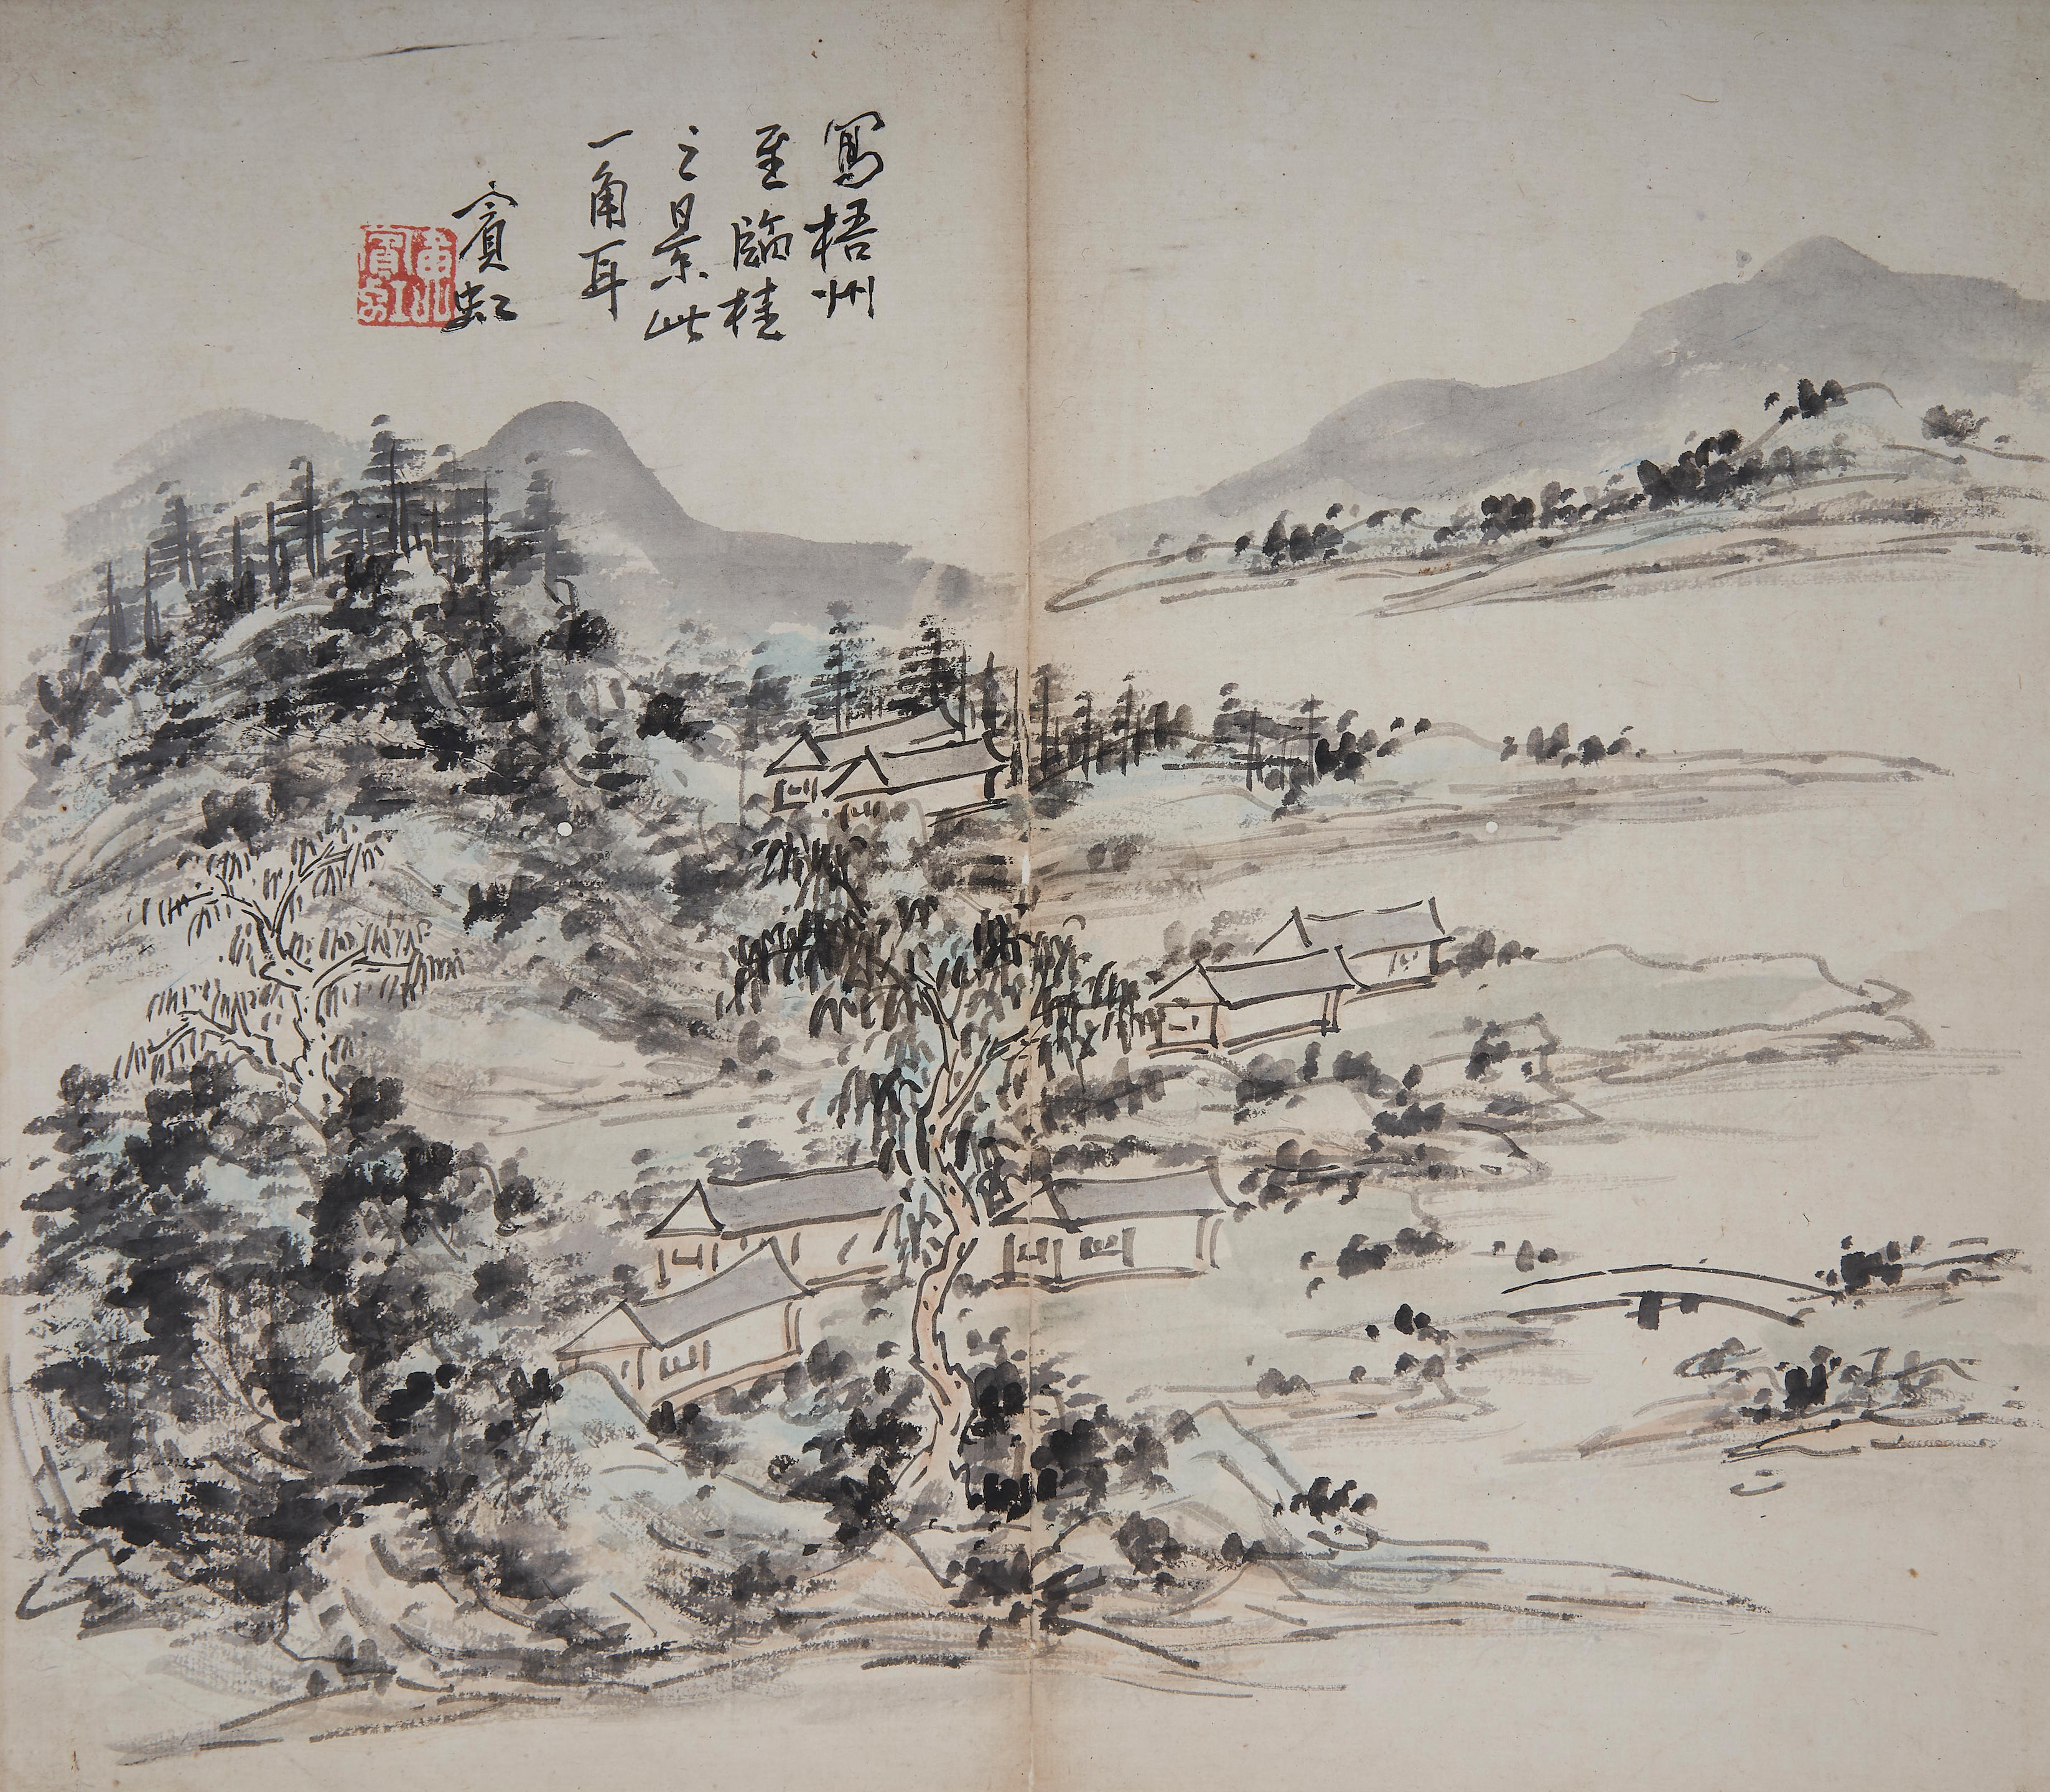 寫梧州
至臨桂
之景此
一角耳
賓虹
黃山賓虹